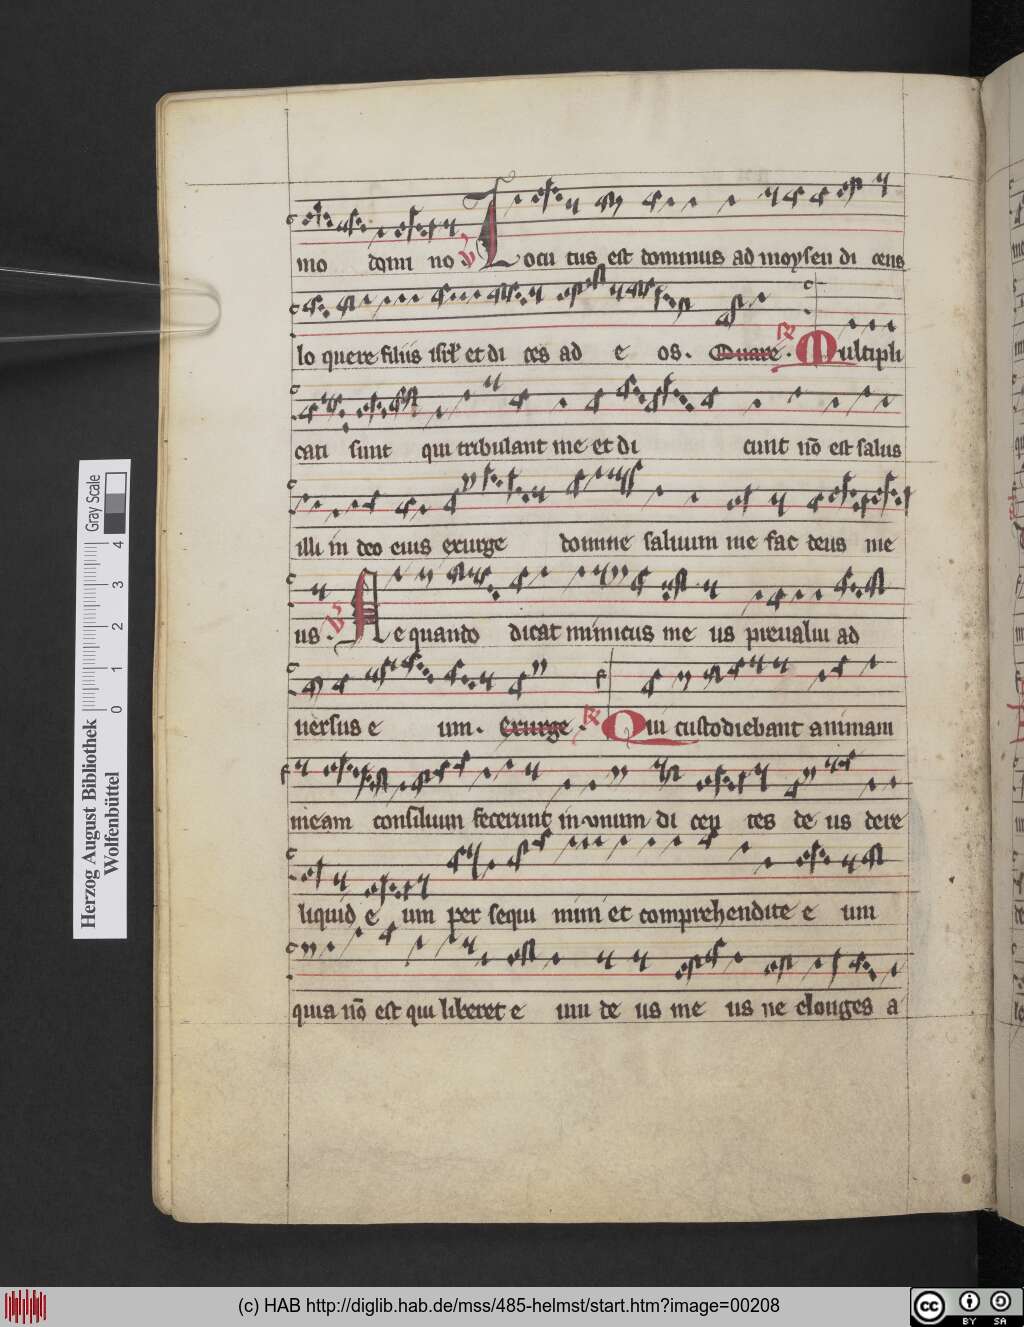 mo domi no ℣ Locu tus est dominus ad moysen di cens
lo quere filiis isrl et di ces ad e os. Quare. ℟ Multipli
cati sunt qui tribulant me et di cunt nō est salus
illi in deo eius exurge domine saluum me fac deus me
us. ℣ Ne quando dicat inimicus me us preualui ad
uersus e um. Exurge. ℟ Qui custodiebant animam
meam consilium fecerunt in vnum di cen tes de us dere
liquid e um per sequi mini et comprehendite e um
quia nō est qui liberet e um de us me us ne elonges a
Gray Scale
0 1 2 3 4
Herzog August Bibliothek
Wolfenbüttel
(c) HAB http://diglib.hab.de/mss/485-helmst/start.htm?image=00208
cc BY SA